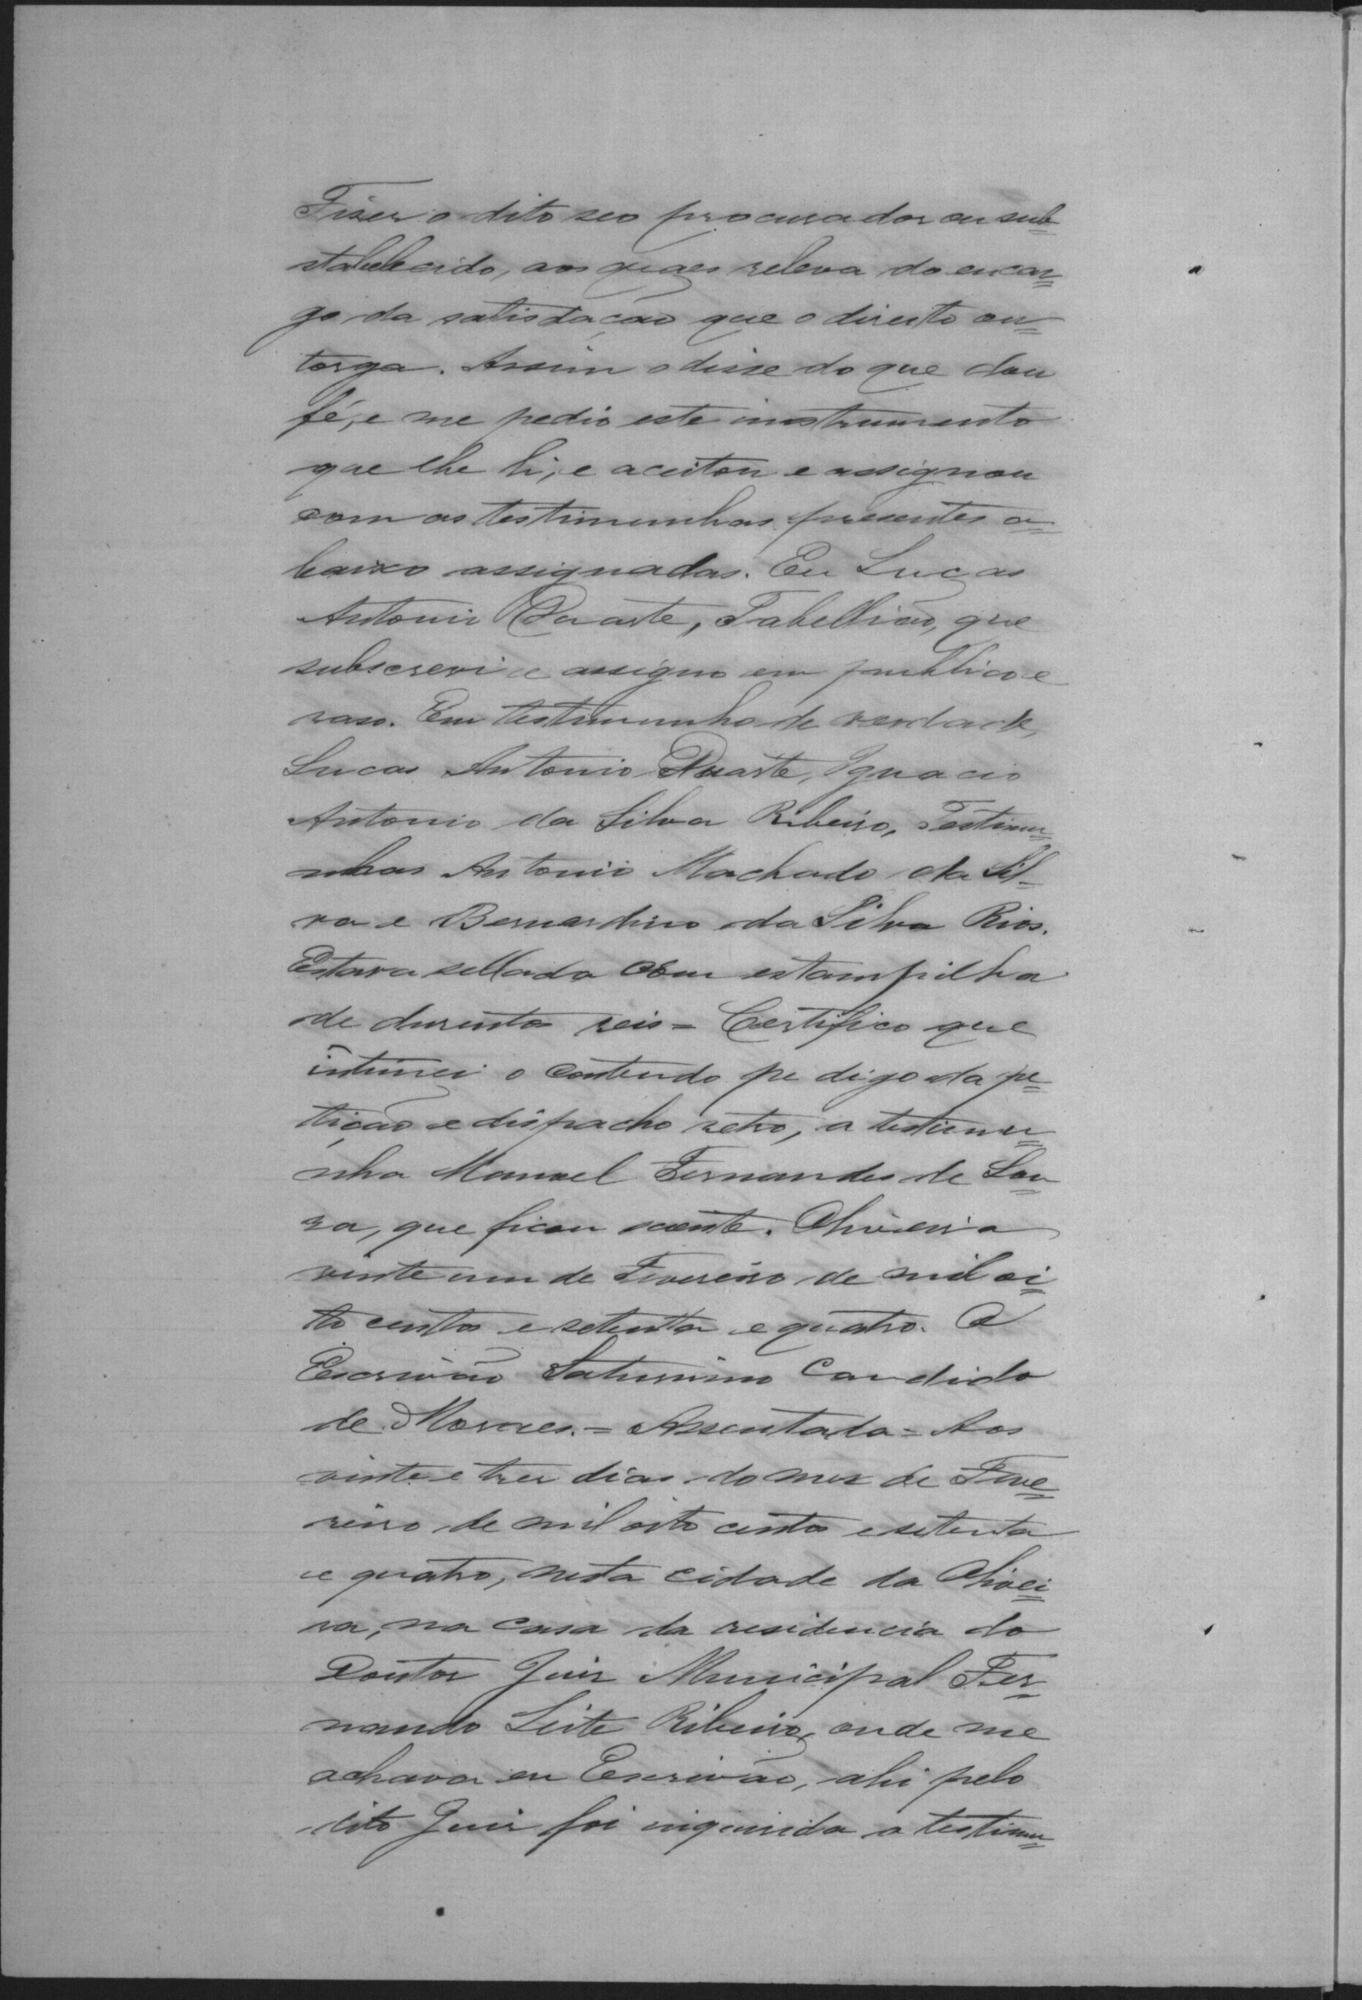 Fizer o dito seo procurador ou sub=
stabelecido, aos quaes releva do encar=
go da satisdação que o direito ou=
torga. Assim o disse do que dou
fé, e me pedio este instrumento
que lhe li, e aceitou e assignou
com as testimunhas presentes a=
baixo assignadas. Eu Lucas
Antonio Duarte, Tabellião, que
subscrevi e assigno em publico e
raso. Em testimunho de verdade,
Lucas Antonio Duarte, Ignacio
Antonio da Silva Ribeiro, Testimu=
nhas Antonio Machado da Sil=
va e Bernardino da Silva Rios.
Estava sellada com estampilha
de duzentos reis = Certifico que
intimei o contendo pe digo da pe=
tição e dispacho retro, a testimu=
nha Manoel Fernandes de Sou=
za, que ficou sciente. Oliveira
vinte um de Fevereiro de mil oi=
to centos e setenta e quatro. O
Escrivão Saturnino Candido
de Moraes. = Assentada = Aos
vinte e tres dias do mez de Feve=
reiro de mil oito centos e setenta
e quatro, nesta cidade da Olivei=
ra, na casa da residencia do
Doutor Juiz Municipal Fer=
nando Leite Ribeiro, onde me
achava eu Escrivão, ahi pelo
dito Juiz foi inquirida a testimu=